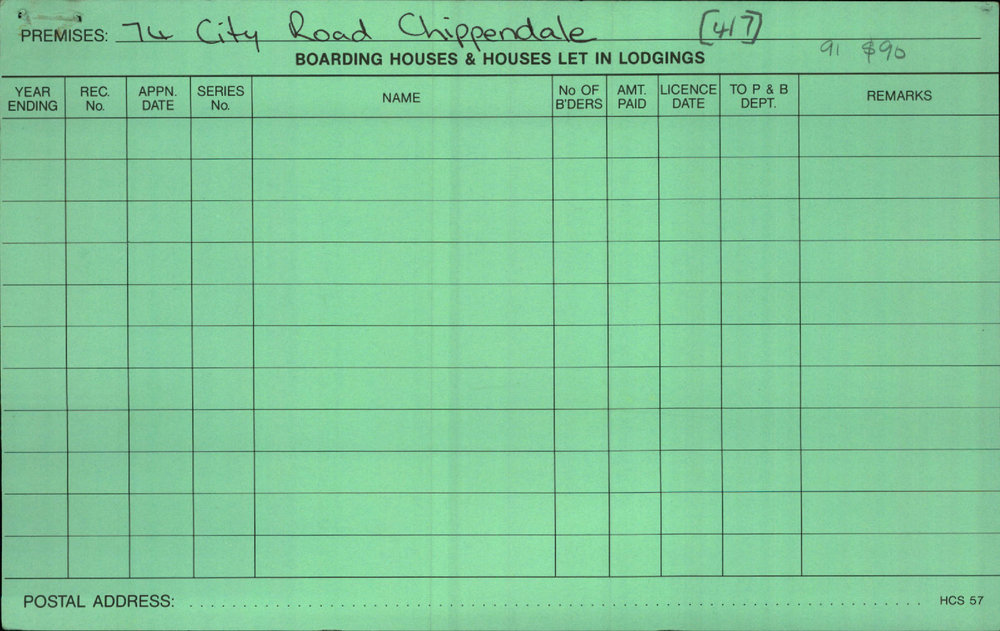 PREMISES: 74 City Road Chippendale [417]
91 $90
BOARDING HOUSES & HOUSES LET IN LODGINGS
YEAR ENDING REC. No. APPN. DATE SERIES No. NAME No OF B'DERS AMT. PAID LICENCE DATE TO P & B DEPT. REMARKS
POSTAL ADDRESS: HCS 57